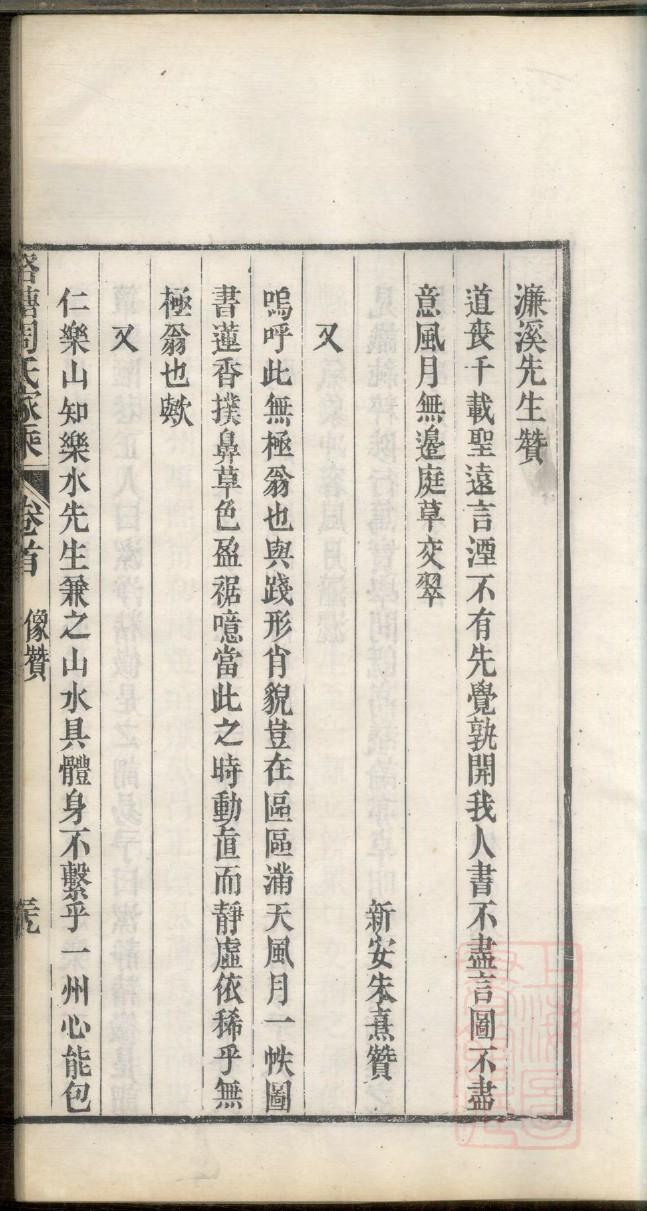 濂溪先生贊
道喪千載聖遠言湮不有先覺孰開我人書不盡言圖不盡
意風月無邊庭草交翠
新安朱熹贊
又
嗚呼此無極翁也與踐形肖貌豈在區區滿天風月一帙圖
書蓮香撲鼻草色盈裾噫當此之時動直而靜虛依稀乎無
極翁也歟
又
仁樂山知樂水先生兼之山水具體身不繫乎一州心能包
周氏家乘 卷首 像贊